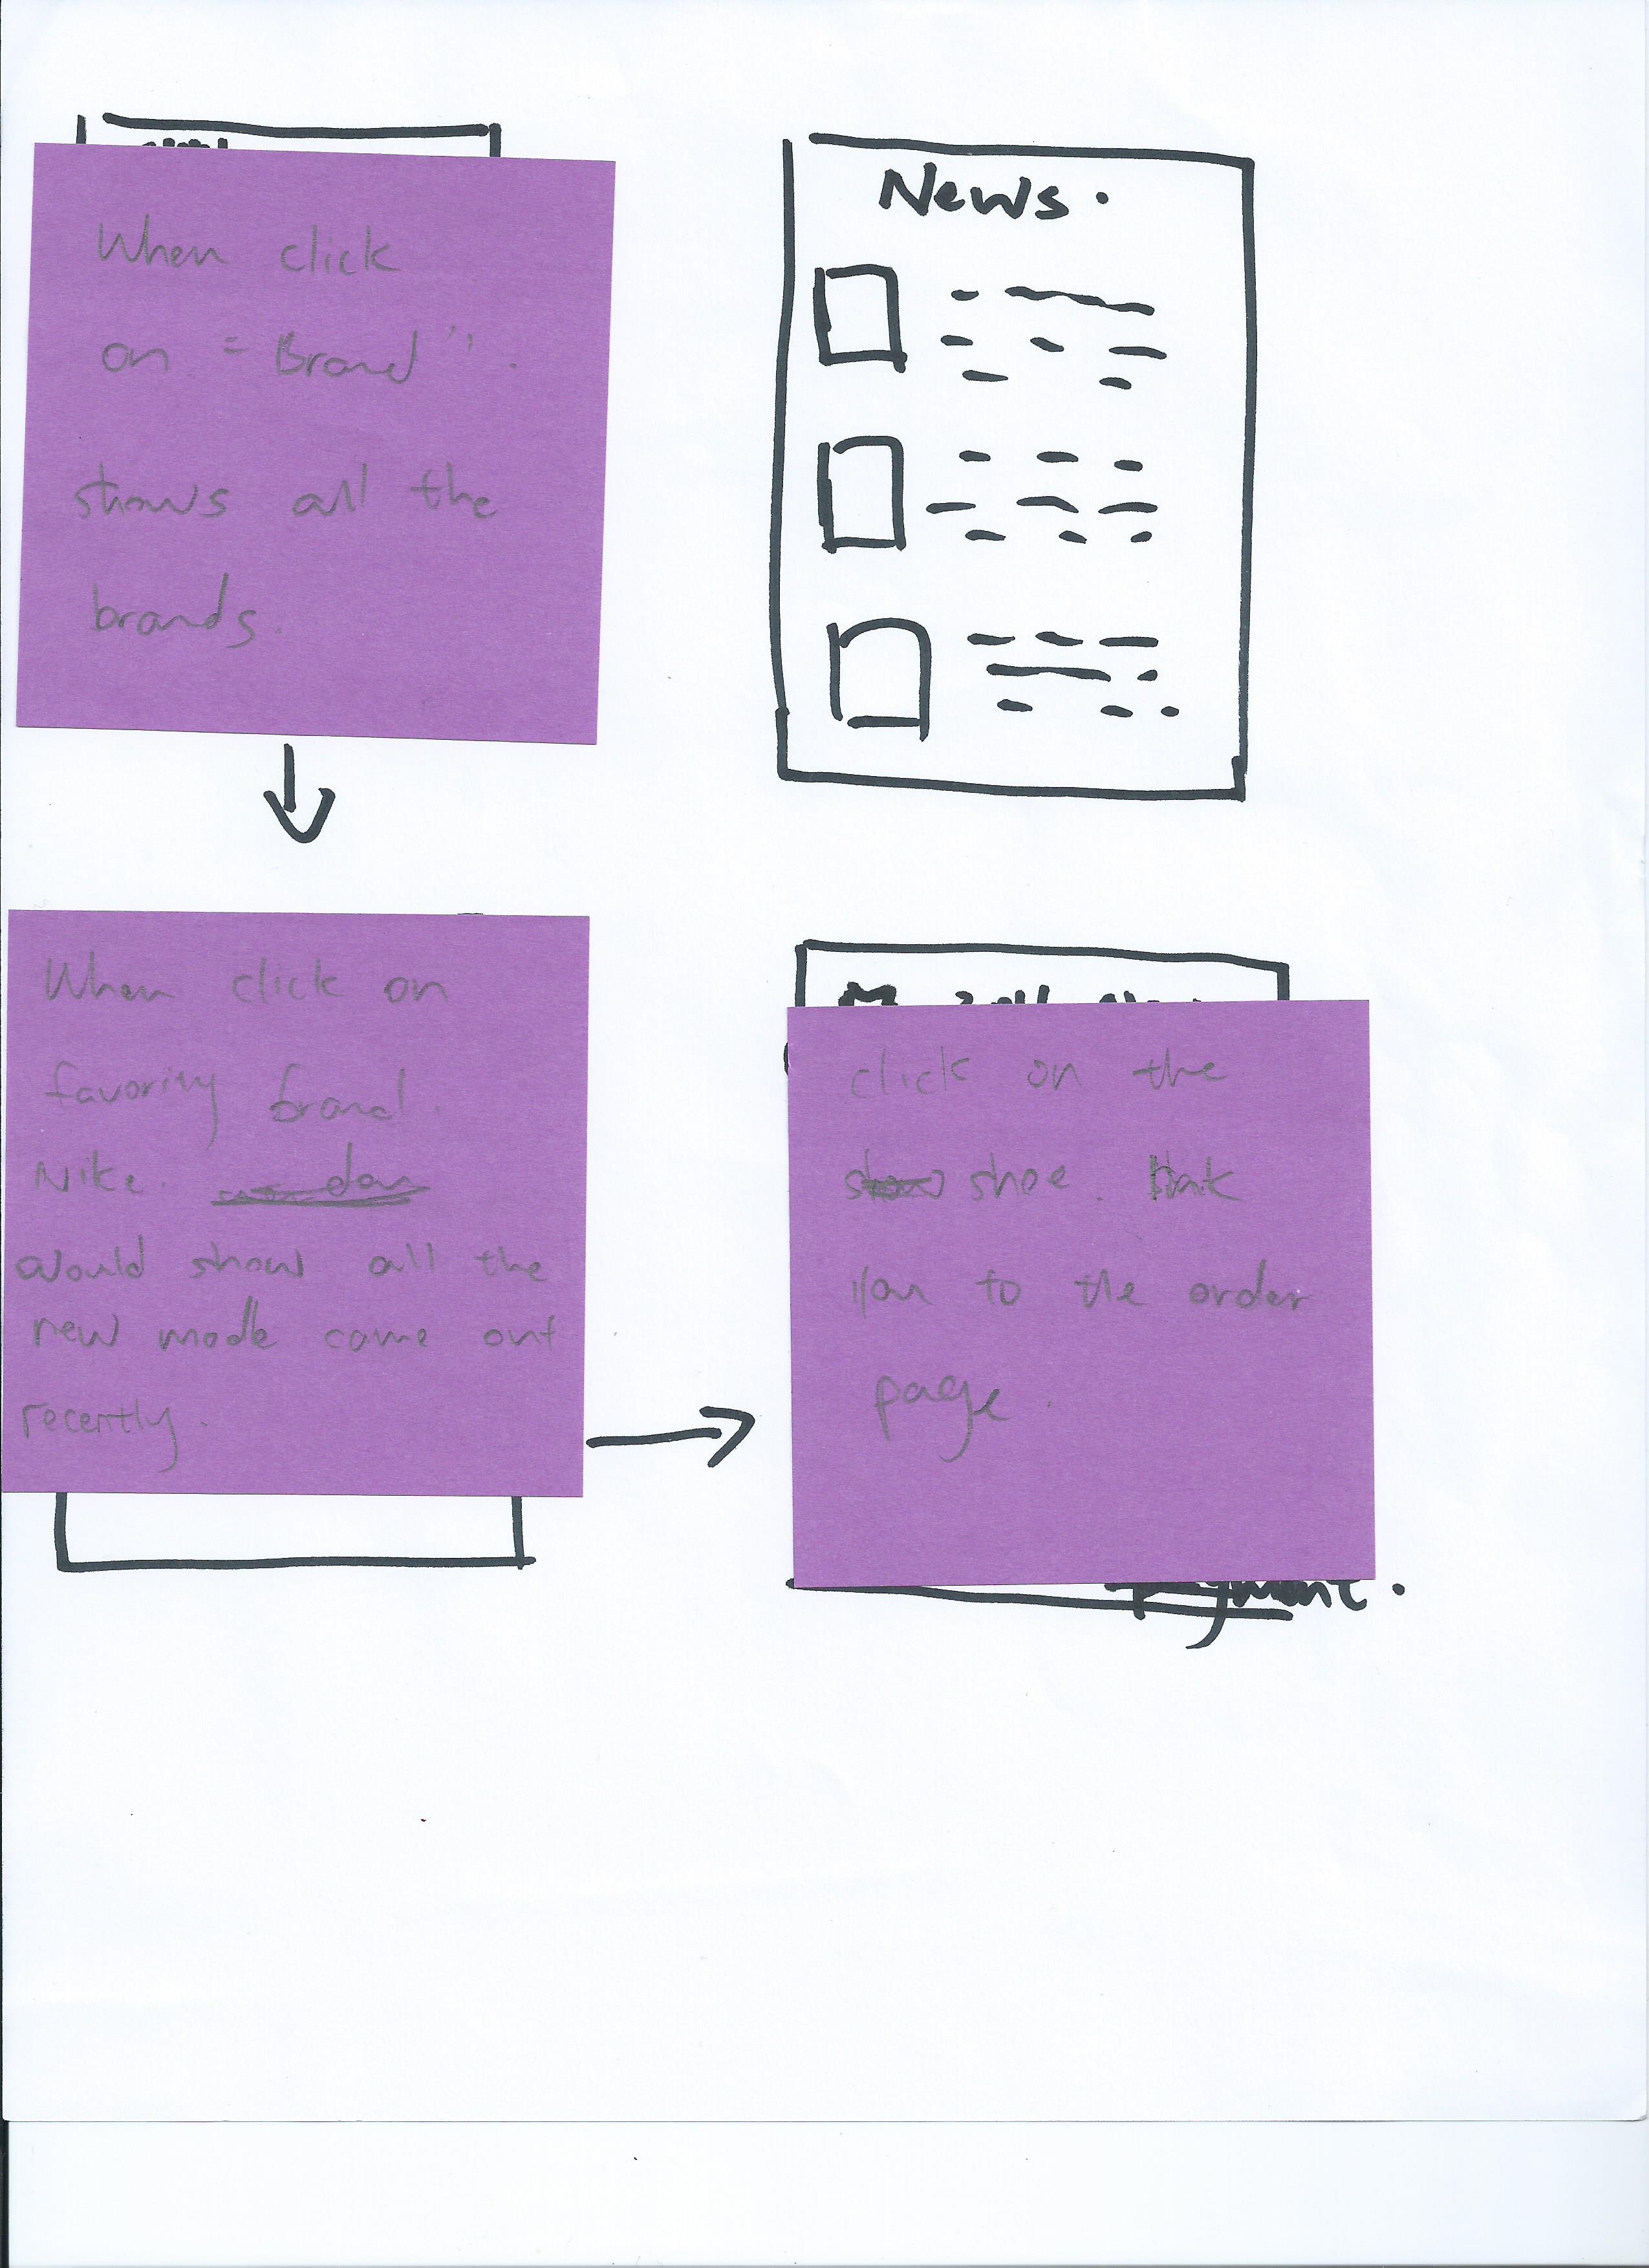 When click
on "Brand".
shows all the
brands.
News.
When click on
favority brand.
Nike.
would show all the
new mode come out
recently.
click on the
shoe.
you to the order
page.
payment.